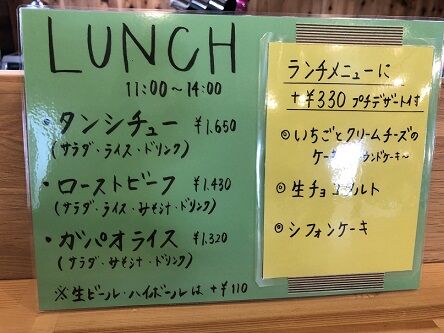 LUNCH
11:00～14:00
・タンシチュー ¥1,650
(サラダ・ライス・ドリンク)
・ローストビーフ ¥1,430
(サラダ・ライス・みそ汁・ドリンク)
・ガパオライス ¥1,320
(サラダ・みそ汁・ドリンク)
※生ビール・ハイボールは +¥110
ランチメニューに
+¥330 プチデザート付
◎いちごとクリームチーズの
ウンドケーキ～
◎生チョコタルト
◎シフォンケーキ